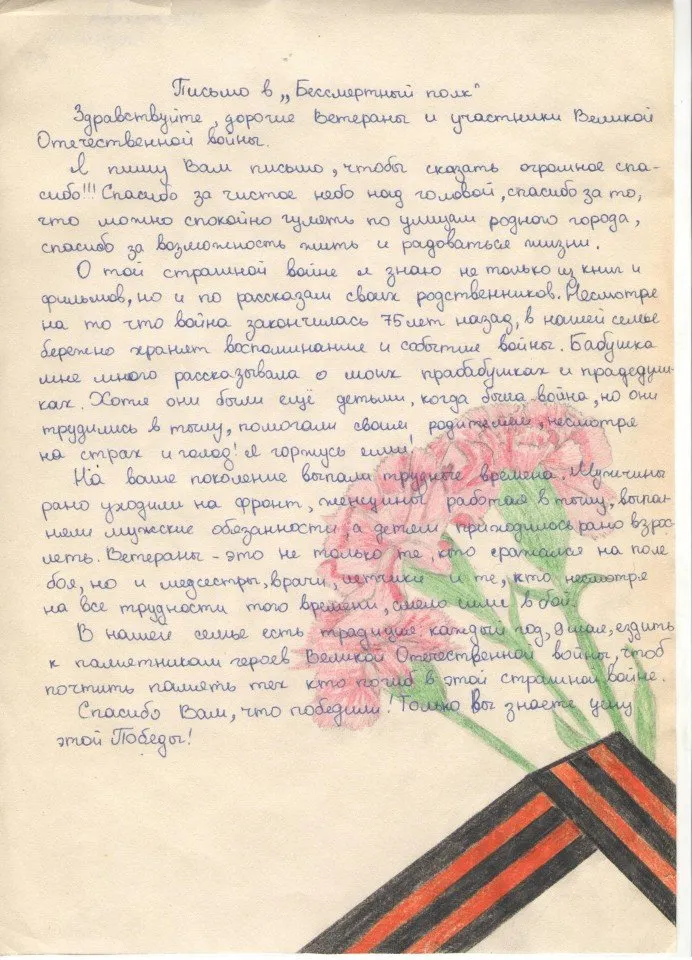 Письмо в „Бессмертный полк"
Здравствуйте, дорогие Ветераны и участники Великой
Отечественной войны.
Я пишу Вам письмо, чтобы сказать огромное спа-
сибо!!! Спасибо за чистое небо над головой, спасибо за то,
что можно спокойно гулять по улицам родного города,
спасибо за возможность жить и радоваться жизни.
О той страшной войне я знаю не только из книг и
фильмов, но и по рассказам своих родственников. Несмотря
на то что война закончилась 75 лет назад, в нашей семье
бережно хранят воспоминание и события войны. Бабушка
мне много рассказывала о моих прабабушках и прадедуш-
ках. Хотя они были ещё детьми, когда была война, но они
трудились в тылу, помогали своим родителям, несмотря
на страх и голод! Я горжусь ими!
На ваше поколение выпали трудные времена. Мужчины
рано уходили на фронт, женщины работая в тылу, выпол-
няли мужские обязанности а детям приходилось рано взрос-
леть. Ветераны - это не только те кто сражался на поле
боя, но и медсестры, врачи, летчики и те, кто несмотря
на все трудности того времени, смело шли в бой.
В нашей семье есть традиция каждый год, 9 мая, ездить
к памятникам героев Великой Отечественной войны, чтоб
почтить память тех кто погиб в этой страшной войне.
Спасибо Вам, что победили! Только вы знаете цену
этой Победы!